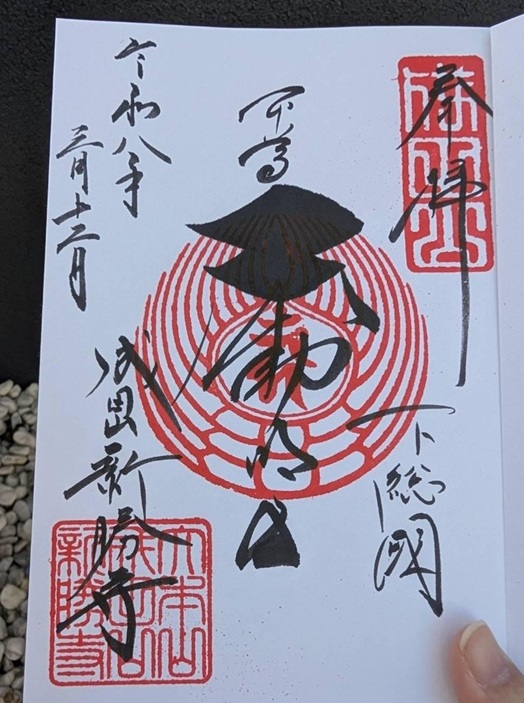 奉拝
下総國
本尊
不動明王
令和八年
三月十二日
成田山新勝寺
大本山
成田山
新勝寺